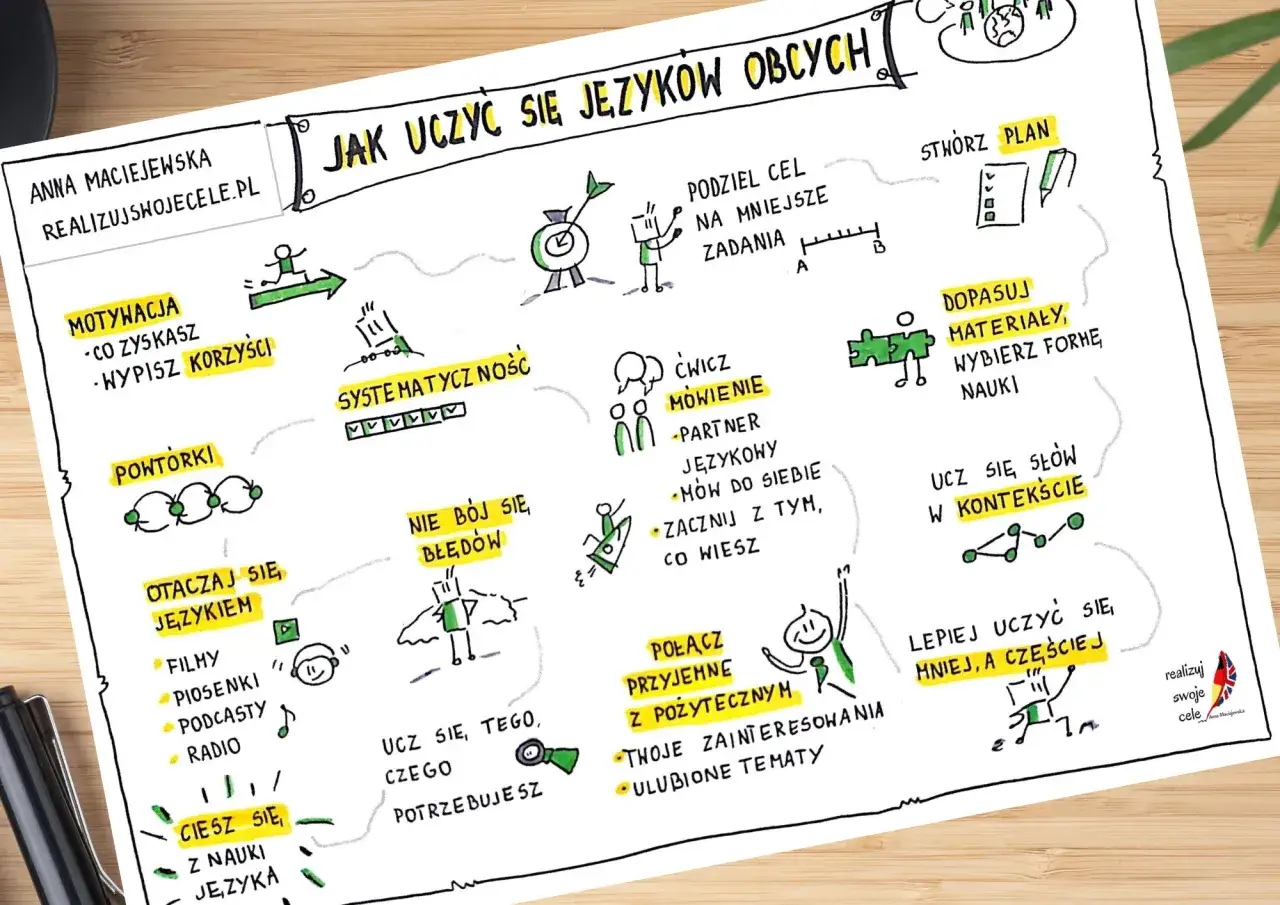 ANNA MACIEJEWSKA
REALIZUJSWOJECELE.PL
JAK UCZYĆ SIĘ JĘZYKÓW OBCYCH
MOTYWACJA
• CO ZYSKASZ
• WYPISZ KORZYŚCI
PODZIEL CEL
NA MNIEJSZE
ZADANIA
A B
STWÓRZ PLAN
DOPASUJ
MATERIAŁY,
WYBIERZ FORMĘ
NAUKI
UCZ SIĘ SŁÓW
W KONTEKŚCIE
LEPIEJ UCZYĆ SIĘ
MNIEJ, A CZĘŚCIEJ
POŁĄCZ
PRZYJEMNE
Z POŻYTECZNYM
• TWOJE ZAINTERESOWANIA
• ULUBIONE TEMATY
ĆWICZ
MÓWIENIE
• PARTNER
JĘZYKOWY
• MÓW DO SIEBIE
• ZACZNIJ Z TYM,
CO WIESZ
SYSTEMATYCZNOŚĆ
POWTÓRKI
OTACZAJ SIĘ
JĘZYKIEM
• FILMY
• PIOSENKI
• PODCASTY
• RADIO
NIE BÓJ SIĘ
BŁĘDÓW
UCZ SIĘ TEGO,
CZEGO
POTRZEBUJESZ
CIESZ SIĘ
Z NAUKI
JĘZYKA
realizuj
swoje
cele
Anna Maciejewska